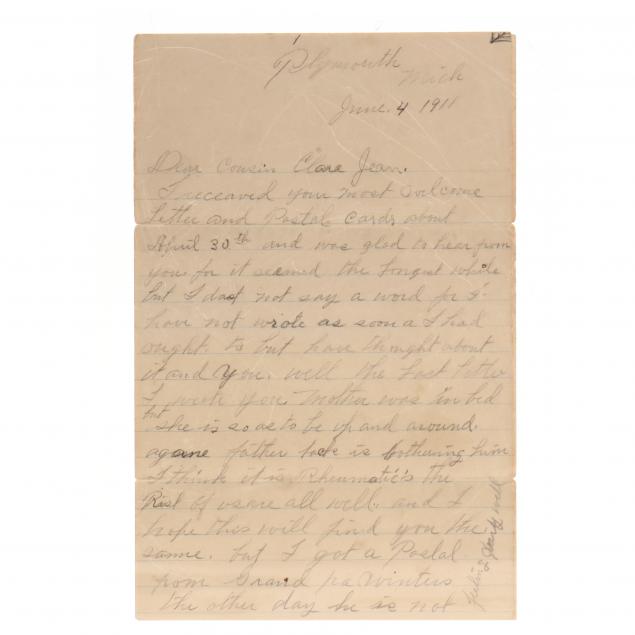 Plymouth
Mich
June. 4 1911
Dear Cousin Clare Jean.
I receaved your most welcome
letter and Postal cards about
April 30th and was glad to hear from
you. for it seemed the Longest while
but I dast not say a word for I
have not wrote as soon a I had
ought. to but have thought about
it and you. well the Last letter
I wrote you Mother was in bed
but she is so as to be up and around.
agane father back is bothering him
I think it is Rheumatic's the
Rist of us are all well. and I
hope this will find you the
same. but I got a Postal
from Grand pa Winters
the other day he is not
well